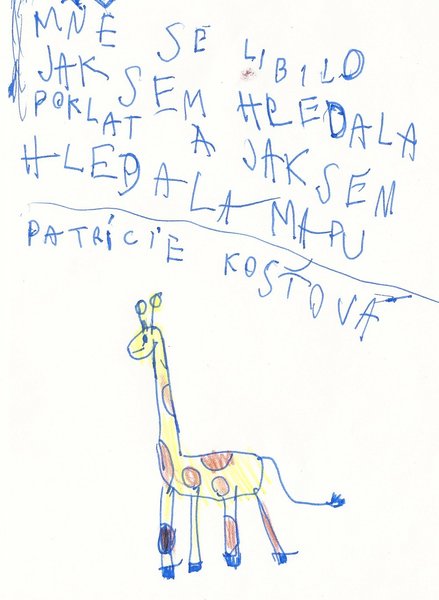 MNE SE LIBILO
JAK SEM HLEDALA
POKLAT A JAK SEM
HLEDALA MAPU
PATRÍCIE KOŠŤOVÁ